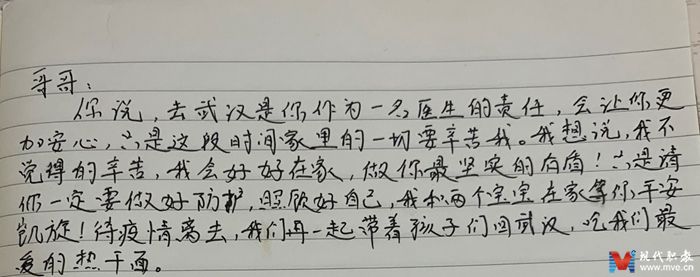 哥哥：
你说，去武汉是你作为一名医生的责任，会让你更
加安心，只是这段时间家里的一切要辛苦我。我想说，我不
觉得的辛苦，我会好好在家，做你最坚实的后盾！只是请
你一定要做好防护，照顾好自己，我和两个宝宝在家等你平安
凯旋！待疫情离去，我们再一起带着孩子们回武汉，吃我们最
爱的热干面。
现代职教
www.mve.cn